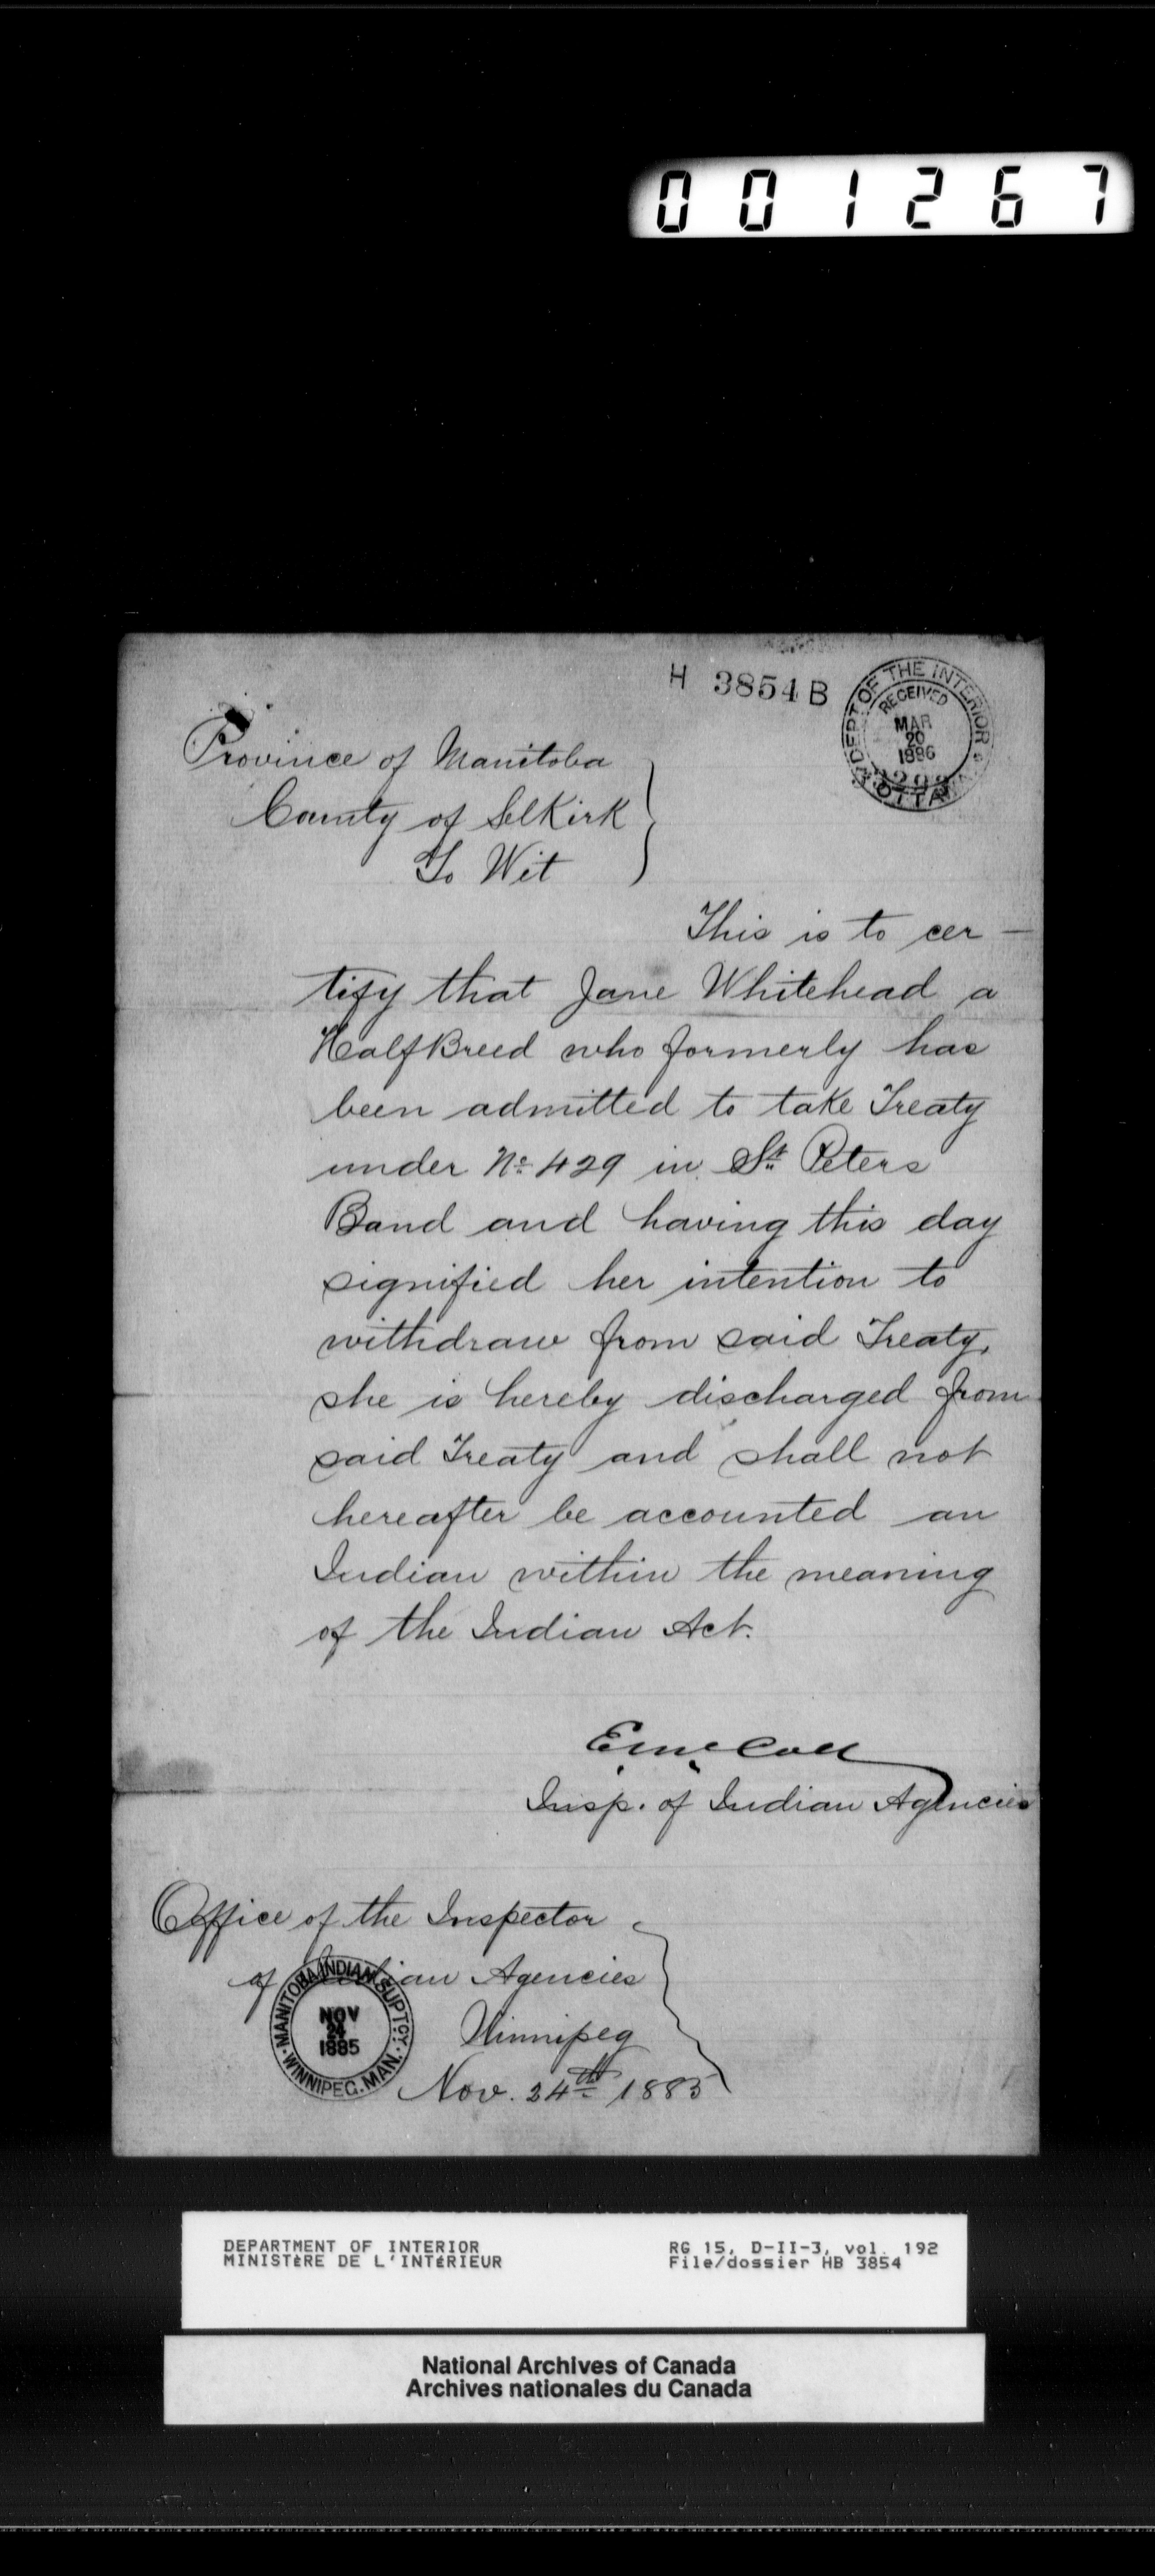 001267
H 3854 B
DEPT OF THE INTERIOR
RECEIVED
MAR
20
1886
OTTAWA
Province of Manitoba
County of Selkirk
To Wit
This is to cer-
tify that Jane Whitehead a
HalfBreed who formerly has
been admitted to take Treaty
under No 429 in St Peters
Band and having this day
signified her intention to
withdraw from said Treaty,
she is hereby discharged from
said Treaty and shall not
hereafter be accounted an
Indian within the meaning
of the Indian Act.
E McColl
Insp. of Indian Agencies
Office of the Inspector
of Indian Agencies
Winnipeg
Nov. 24th 1885
MANITOBA INDIAN SUPTCY.
NOV
24
1885
WINNIPEG. MAN.
DEPARTMENT OF INTERIOR RG 15, D-II-3, vol. 192
MINISTÈRE DE L'INTÉRIEUR File/dossier HB 3854
National Archives of Canada
Archives nationales du Canada